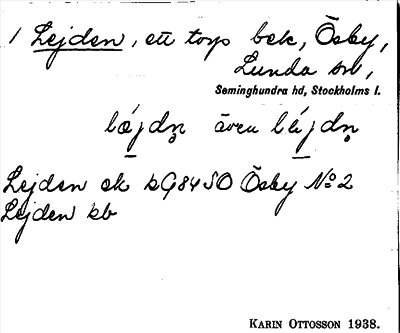 1 Lejden, ett torp bek, Ösby,
Lunda sn,
Seminghundra hd, Stockholms l.
læjdn̥ även léjdn̥
Lejden ek bG84 SO Ösby № 2
Lejden kb
KARIN OTTOSSON 1938.